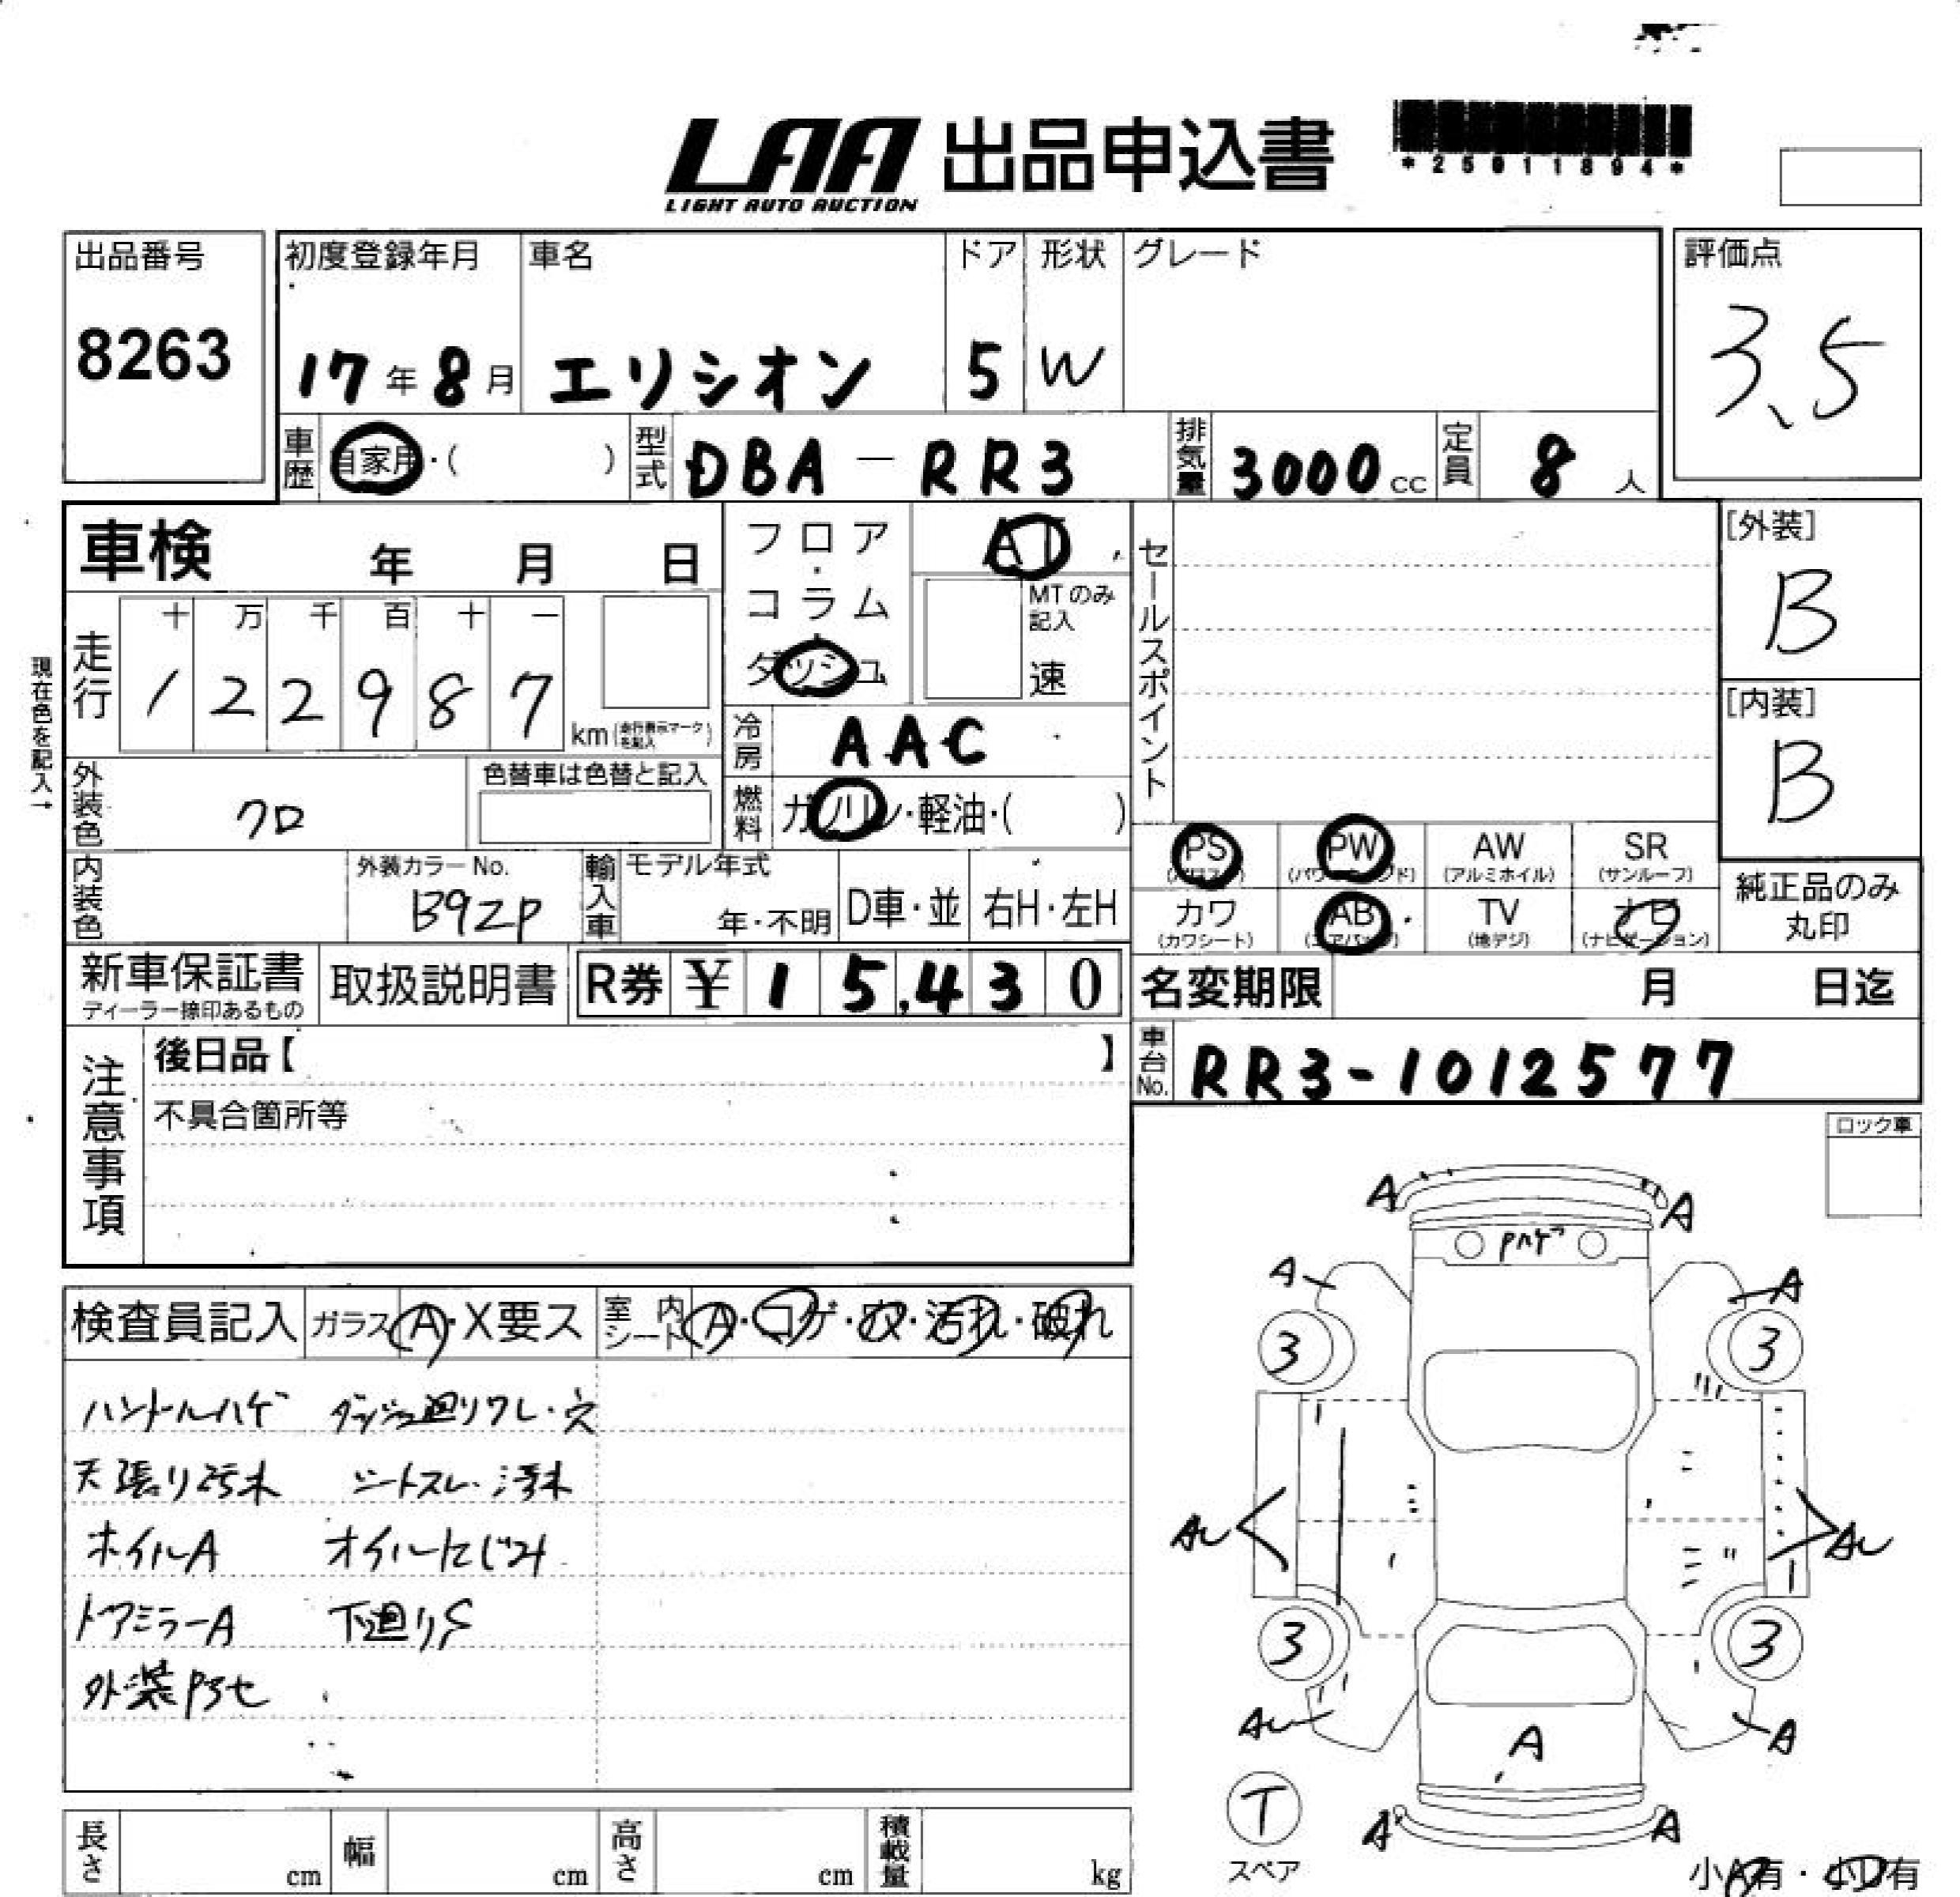 LAA 出品申込書
LIGHT AUTO AUCTION
*25011894*
出品番号
8263
初度登録年月
17年8月
車名
エリシオン
ドア
5
形状
W
グレード
評価点
3.5
車歴
自家用・( )
型式
DBA－RR3
排気量
3000cc
定員
8人
車検 年 月 日
フロア・コラム・ダッシュ
AT
MTのみ記入
速
セールスポイント
[外装]
B
[内装]
B
現在色を記入→
走行
十 万 千 百 十 一
1 2 2 9 8 7
km(走行表示マークを記入)
冷房
AAC
外装色
クロ
色替車は色替と記入
燃料
ガソリン・軽油・( )
内装色
外装カラーNo.
B92P
輸入車
モデル年式
年・不明
D車・並
右H・左H
PS
PW
AW
(アルミホイル)
SR
(サンルーフ)
カワ
(カワシート)
AB
(エアバッグ)
TV
(地デジ)
ナビ
(ナビゲーション)
純正品のみ丸印
新車保証書
ディーラー捺印あるもの
取扱説明書
R券 ¥15,430
名変期限 月 日迄
注意事項
後日品【 】
不具合箇所等
車台No.
RR3-1012577
ロック車
検査員記入
ガラス A・X要ス
室内シート A・コゲ・穴・汚れ・破れ
ハンドルハゲ ダッシュ廻りワレ・穴
天張り汚れ シートスレ・汚れ
ホイルA オイルにじみ
ドアミラーA 下廻りS
外装PSセ
A A
Pハゲ
A A
3 3
AU AU
3 3
AU A
A
T
スペア
A A
小A有・小U有
長さ cm
幅 cm
高さ cm
積載量 kg